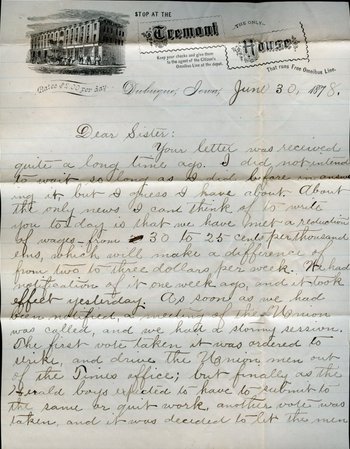 STOP AT THE
Tremont
THE ONLY
House
Keep your checks and give them
to the agent of the Citizen's
Omnibus Line at the depot.
That runs Free Omnibus Line.
Rates $2.00 per day
Dubuque, Iowa, June 30, 1878.
Dear Sister:
Your letter was received
quite a long time ago. I did not intend
to wait so long as I did before in answer
ing it, but I guess I have about. About
the only news I can think of to write
you to-day is that we have met a reduction
of wages—from 30 to 25 cents per thousand
ems, which will make a difference of
from two to three dollars per week. We had
notification of it one week ago, and it took
effect yesterday. As soon as we had
been notified, a meeting of the Union
was called, and we had a stormy session.
The first vote taken it was ordered to
strike, and drive the Union men out
of the Times office; but finally as the
Herald boys expected to have to submit to
the same or quit work, another vote was
taken, and it was decided to let the men